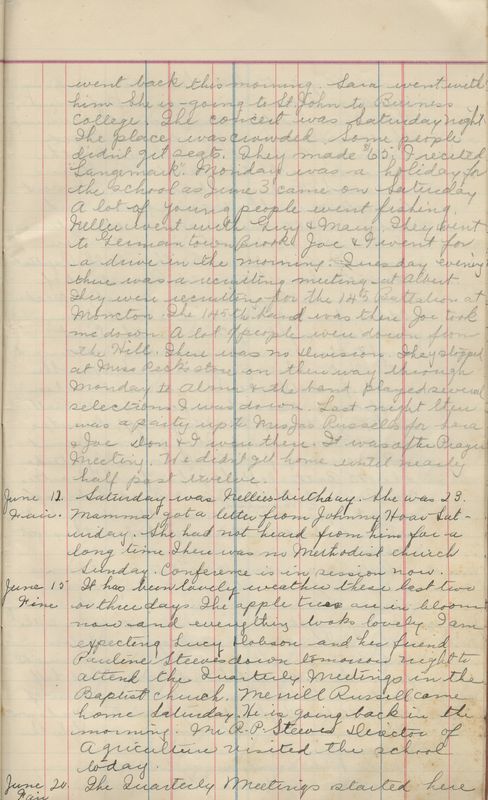 went back this morning. Sara went with
him. She is going to St John to Business
College. The concert was Saturday night
The place was crowded. Some people
didn't get seats. They made $65. I recited
"Langemark". Monday was a holiday for
the school as June 3 came on Saturday
A lot of young people went fishing.
Nellie went with Guy & Mary. They went
to Germantown Brook. Joe & I went for
a drive in the morning. Tuesday evening
there was a recruiting meeting at Albert.
They were recruiting for the 145 Battalion at
Moncton. The 145th band was there Joe took
me down. A lot of people were down from
the Hill. There was no Division. They stopped
at Miss Peck's store on their way through
Monday to Alma & the band played several
selections. I was down. Last night there
was a party up to Mrs Jas Russells for
& Joe Don & I were there. It was after Prayer
Meeting. We didn't get home until nearly
half past twelve.
June 12. Saturday was Nellies birthday. She was 23.
Fair. Mamma got a letter from Johnny Hoar Sat-
urday. She had not heard from him for a
long time. There was no Methodist church
Sunday. Conference is in session now.
June 15 It has been lovely weather these last two
Fine or three days. The apple trees are in bloom
now and everything looks lovely. I am
expecting Lucy Hobson and her friend
Pauline Steeves down tomorrow night to
attend the Quarterly Meetings in the
Baptist church. Merrill Russell came
home Saturday. He is going back in the
morning. Mr R.P. Steeves Director of
Agriculture visited the school
today.
June 20. The Quarterly Meetings started here
Fair